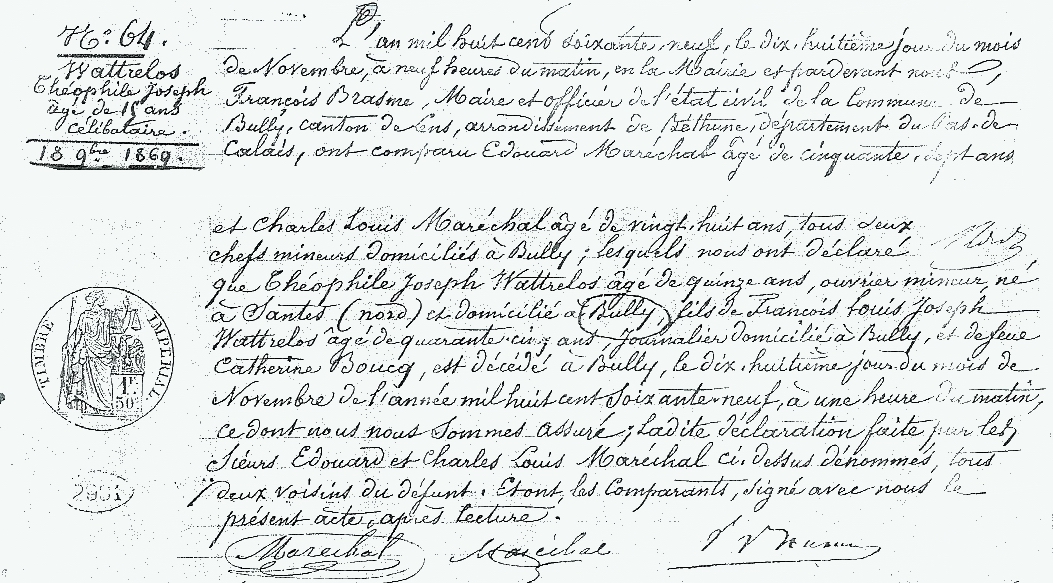 N° 64.
Wattrelos
Théophile Joseph
âgé de 15 ans
célibataire.
18 9bre 1869.
L'an mil huit cent soixante-neuf, le dix-huitième jour du mois
de Novembre, à neuf heures du matin, en la Mairie et pardevant nous
François Brasme, Maire et officier de l'état civil de la Commune de
Bully, canton de Lens, arrondissement de Béthune, département du Pas-de-
Calais, ont comparu Edouard Maréchal âgé de cinquante-sept ans
et Charles Louis Maréchal âgé de vingt-huit ans, tous deux
chefs mineurs domiciliés à Bully ; lesquels nous ont déclaré
que Théophile Joseph Wattrelos âgé de quinze ans, ouvrier mineur, né
à Santes (nord) et domicilié à Bully, fils de François Louis Joseph
Wattrelos âgé de quarante-cinq ans Journalier domicilié à Bully, et de feue
Catherine Boucq, est décédé à Bully, le dix-huitième jour du mois de
Novembre de l'année mil huit cent soixante-neuf, à une heure du matin,
ce dont nous nous sommes assuré ; Ladite déclaration faite par les
Sieurs Edouard et Charles Louis Maréchal ci-dessus dénommés, tous
deux voisins du défunt. Et ont, les Comparants, signé avec nous le
présent acte, après lecture.
TIMBRE IMPERIAL
1F.
50c.
Maréchal Maréchal